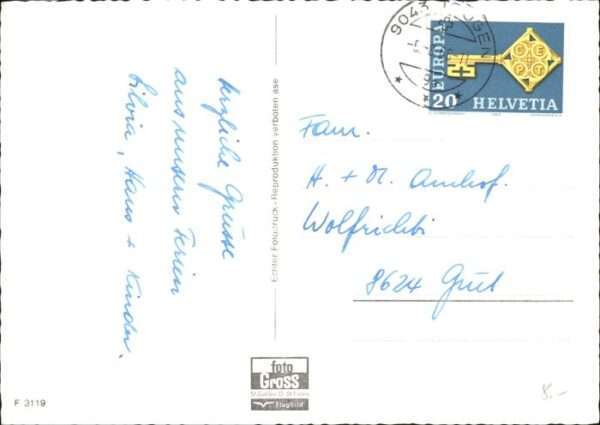 herzliche Grüsse
aus unseren Ferien
Silvia, Hans + Kinder.
Echter Fotodruck - Reproduktion verboten ase
9043 TROGEN
EUROPA
CEPT
20 HELVETIA
Fam.
H. + M. Amhof.
Wolfrichti
8624 Grüt
foto
Gross
St.Gallen
Flugbild
F 3119
8.-